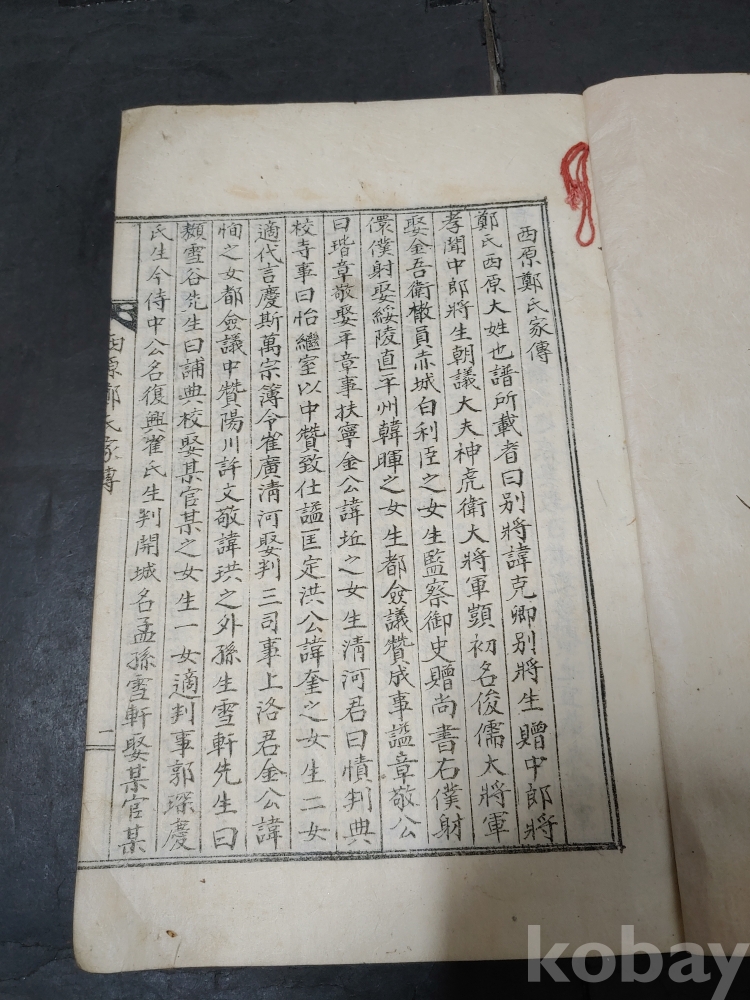 西原鄭氏家傳
鄭氏西原大姓也譜所載者曰別將諱克卿別將生贈中郎將
孝聞中郎將生朝議大夫神虎衛大將軍顗初名俊儒大將軍
娶金吾衛散員赤城白利臣之女生監察御史贈尚書右僕射
儇僕射娶綏陵直平州韓暉之女生都僉議贊成事謚章敬公
曰瑎章敬娶平章事扶寧金公諱坵之女生淸河君曰㥽判典
校寺事曰怡繼室以中贊致仕謚匡定洪公諱奎之女生二女
適代言慶斯萬宗簿令崔廣淸河娶判三司事上洛君金公諱
恂之女都僉議中贊陽川許文敬諱珙之外孫生雪軒先生曰
䫨雪谷先生曰誧典校娶某官某之女生一女適判事郭琛慶
氏生今侍中公名復興崔氏生判開城名孟孫雪軒娶某官某
西原鄭氏家傳
一
kobay